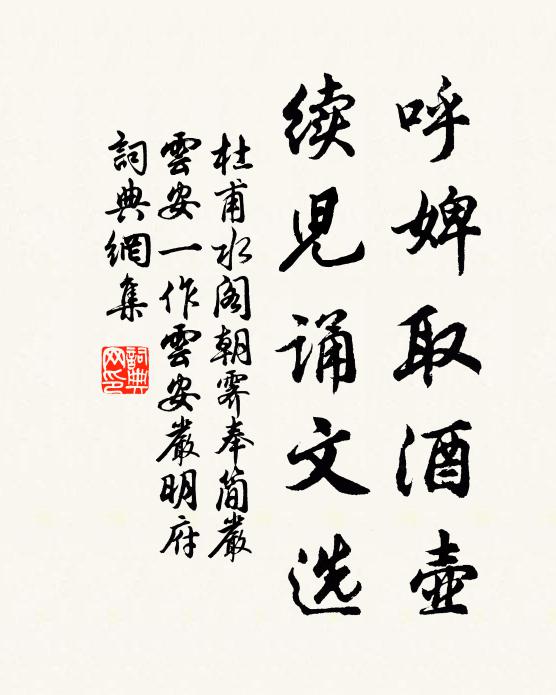 呼婢取酒壶
续児诵文选
杜甫水阁朝霁奉简嚴
雲安一作雲安嚴明府
詞典網集
詞典网印